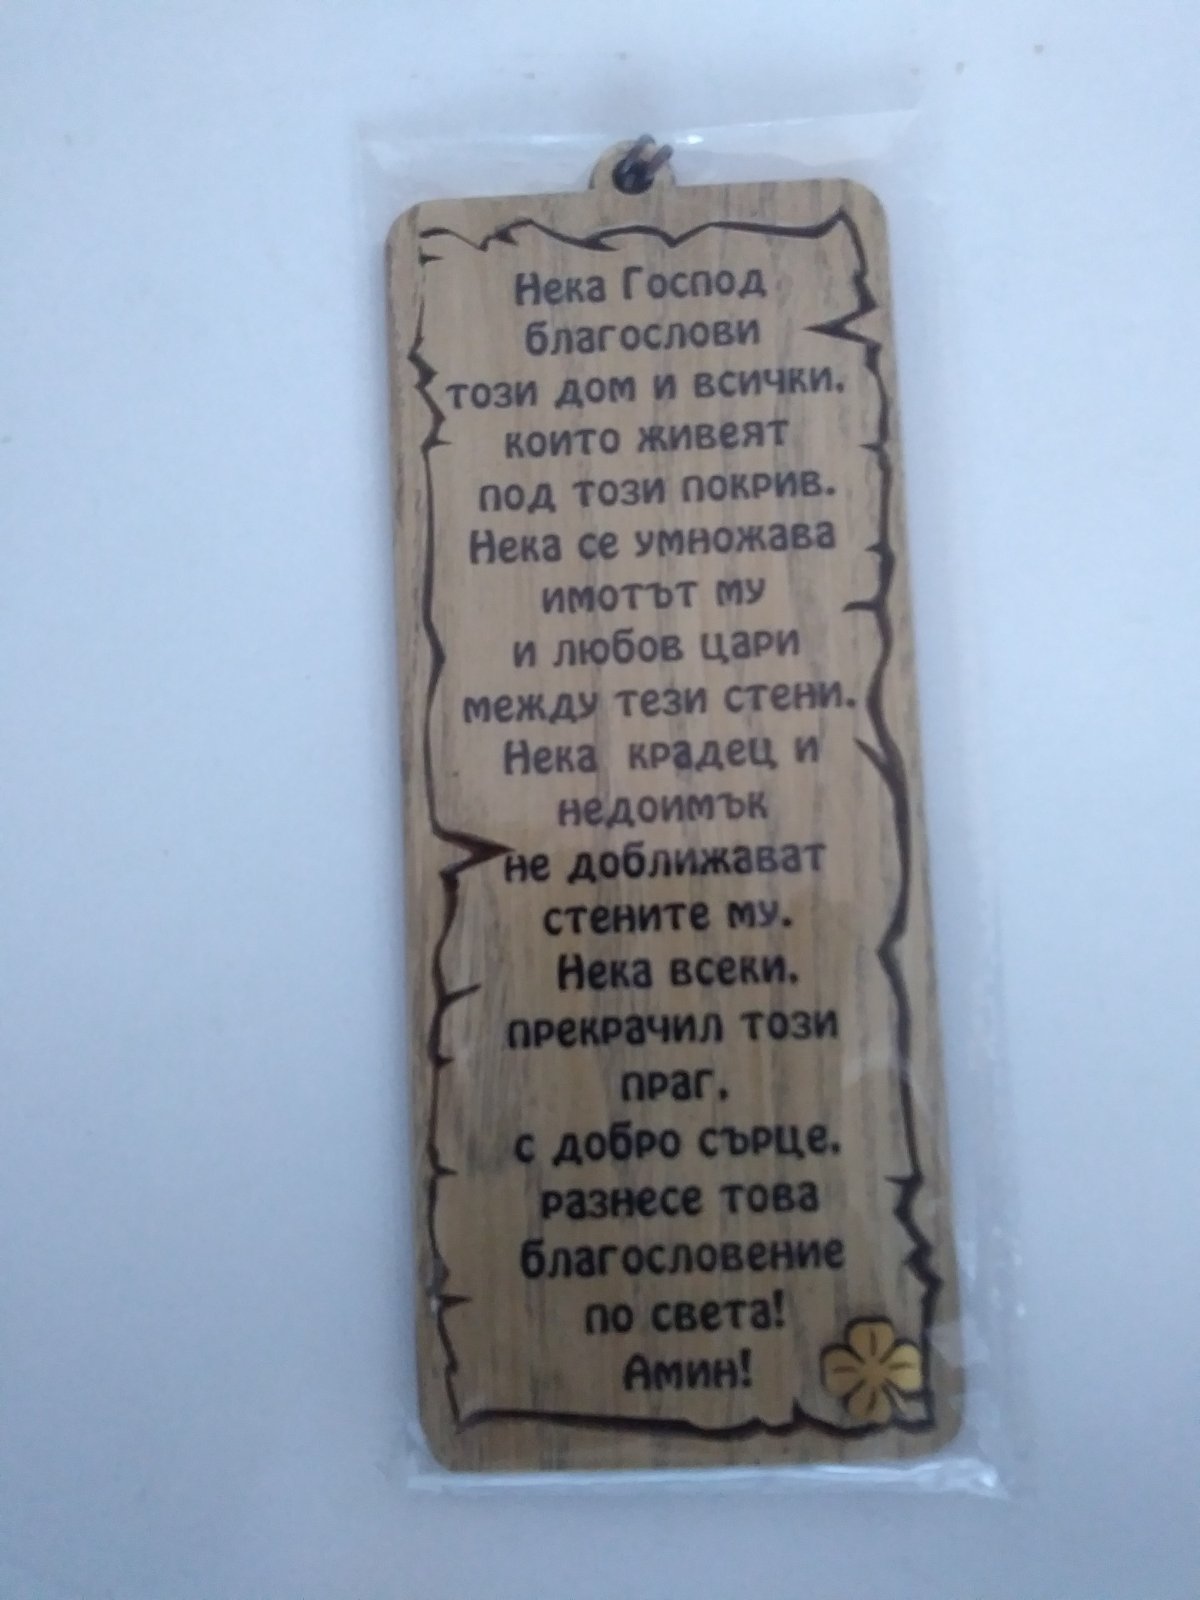 Нека Господ
благослови
този дом и всички,
които живеят
под този покрив.
Нека се умножава
имотът му
и любов цари
между тези стени.
Нека крадец и
недоимък
не доближават
стените му.
Нека всеки,
прекрачил този
праг,
с добро сърце,
разнесе това
благословение
по света!
Амин!